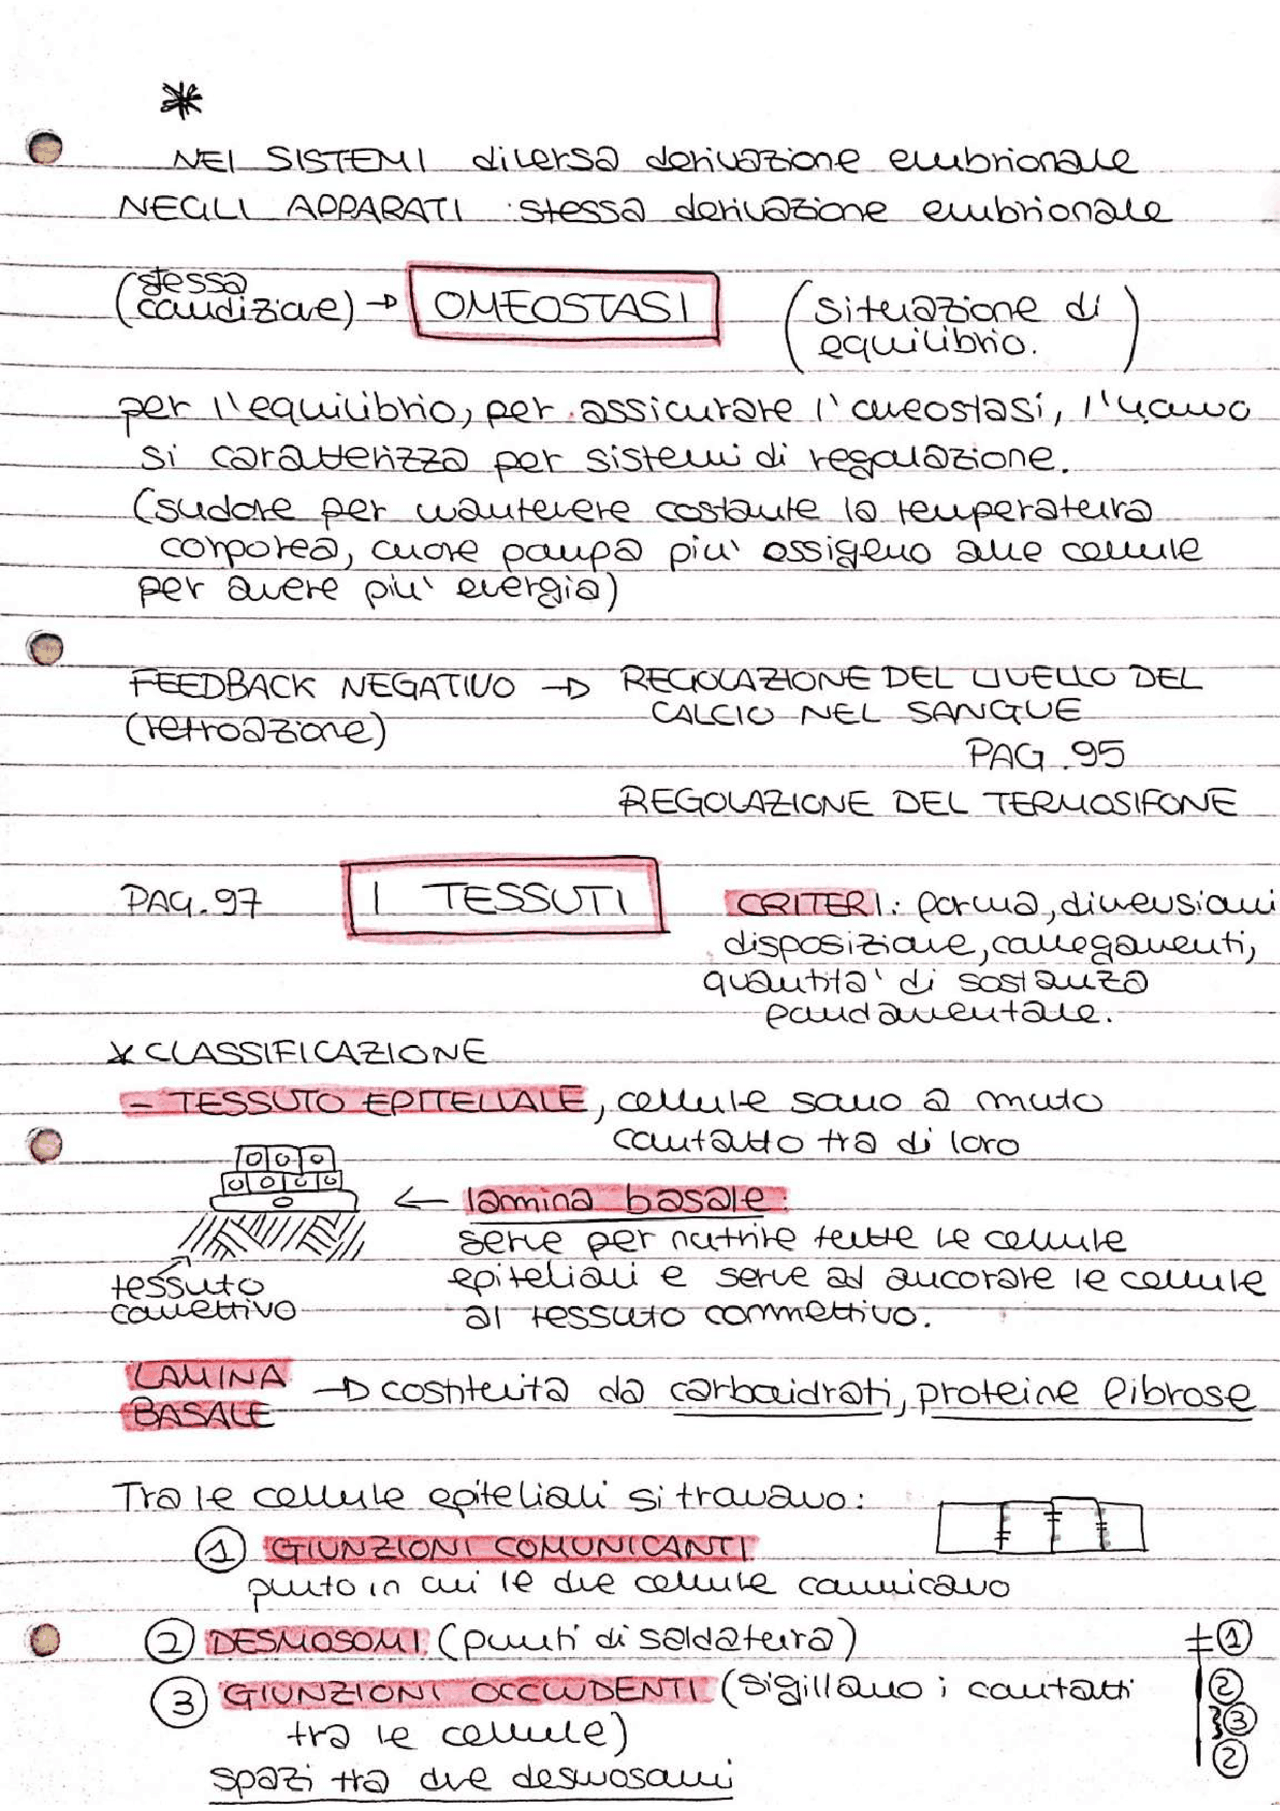 *
NEI SISTEMI diversa derivazione embrionale
NEGLI APPARATI stessa derivazione embrionale
(stessa condizione) → OMEOSTASI (situazione di equilibrio.)
per l'equilibrio, per assicurare l'omeostasi, l'uomo
si caratterizza per sistemi di regolazione.
(sudore per mantenere costante la temperatura
corporea, cuore pompa piu' ossigeno alle cellule
per avere piu' energia)
FEEDBACK NEGATIVO → REGOLAZIONE DEL LIVELLO DEL
(retroazione) CALCIO NEL SANGUE
PAG. 95
REGOLAZIONE DEL TERMOSIFONE
PAG. 97 I TESSUTI CRITERI: forma, dimensioni
disposizione, collegamenti,
quantita' di sostanza
fondamentale.
* CLASSIFICAZIONE
- TESSUTO EPITELIALE, cellule sono a muto
contatto tra di loro
← lamina basale:
serve per nutrire tutte le cellule
epiteliali e serve ad ancorare le cellule
al tessuto commettivo.
tessuto
connettivo
LAMINA
BASALE → costituita da carboidrati, proteine fibrose
Tra le cellule epiteliali si trovano:
1 GIUNZIONI COMUNICANTI
punto in cui le due cellule comunicano
2 DESMOSOMI (punti di saldatura)
3 GIUNZIONI OCCLUDENTI (sigillano i contatti
tra le cellule)
spazi tra due desmosomi
1
2
3
2